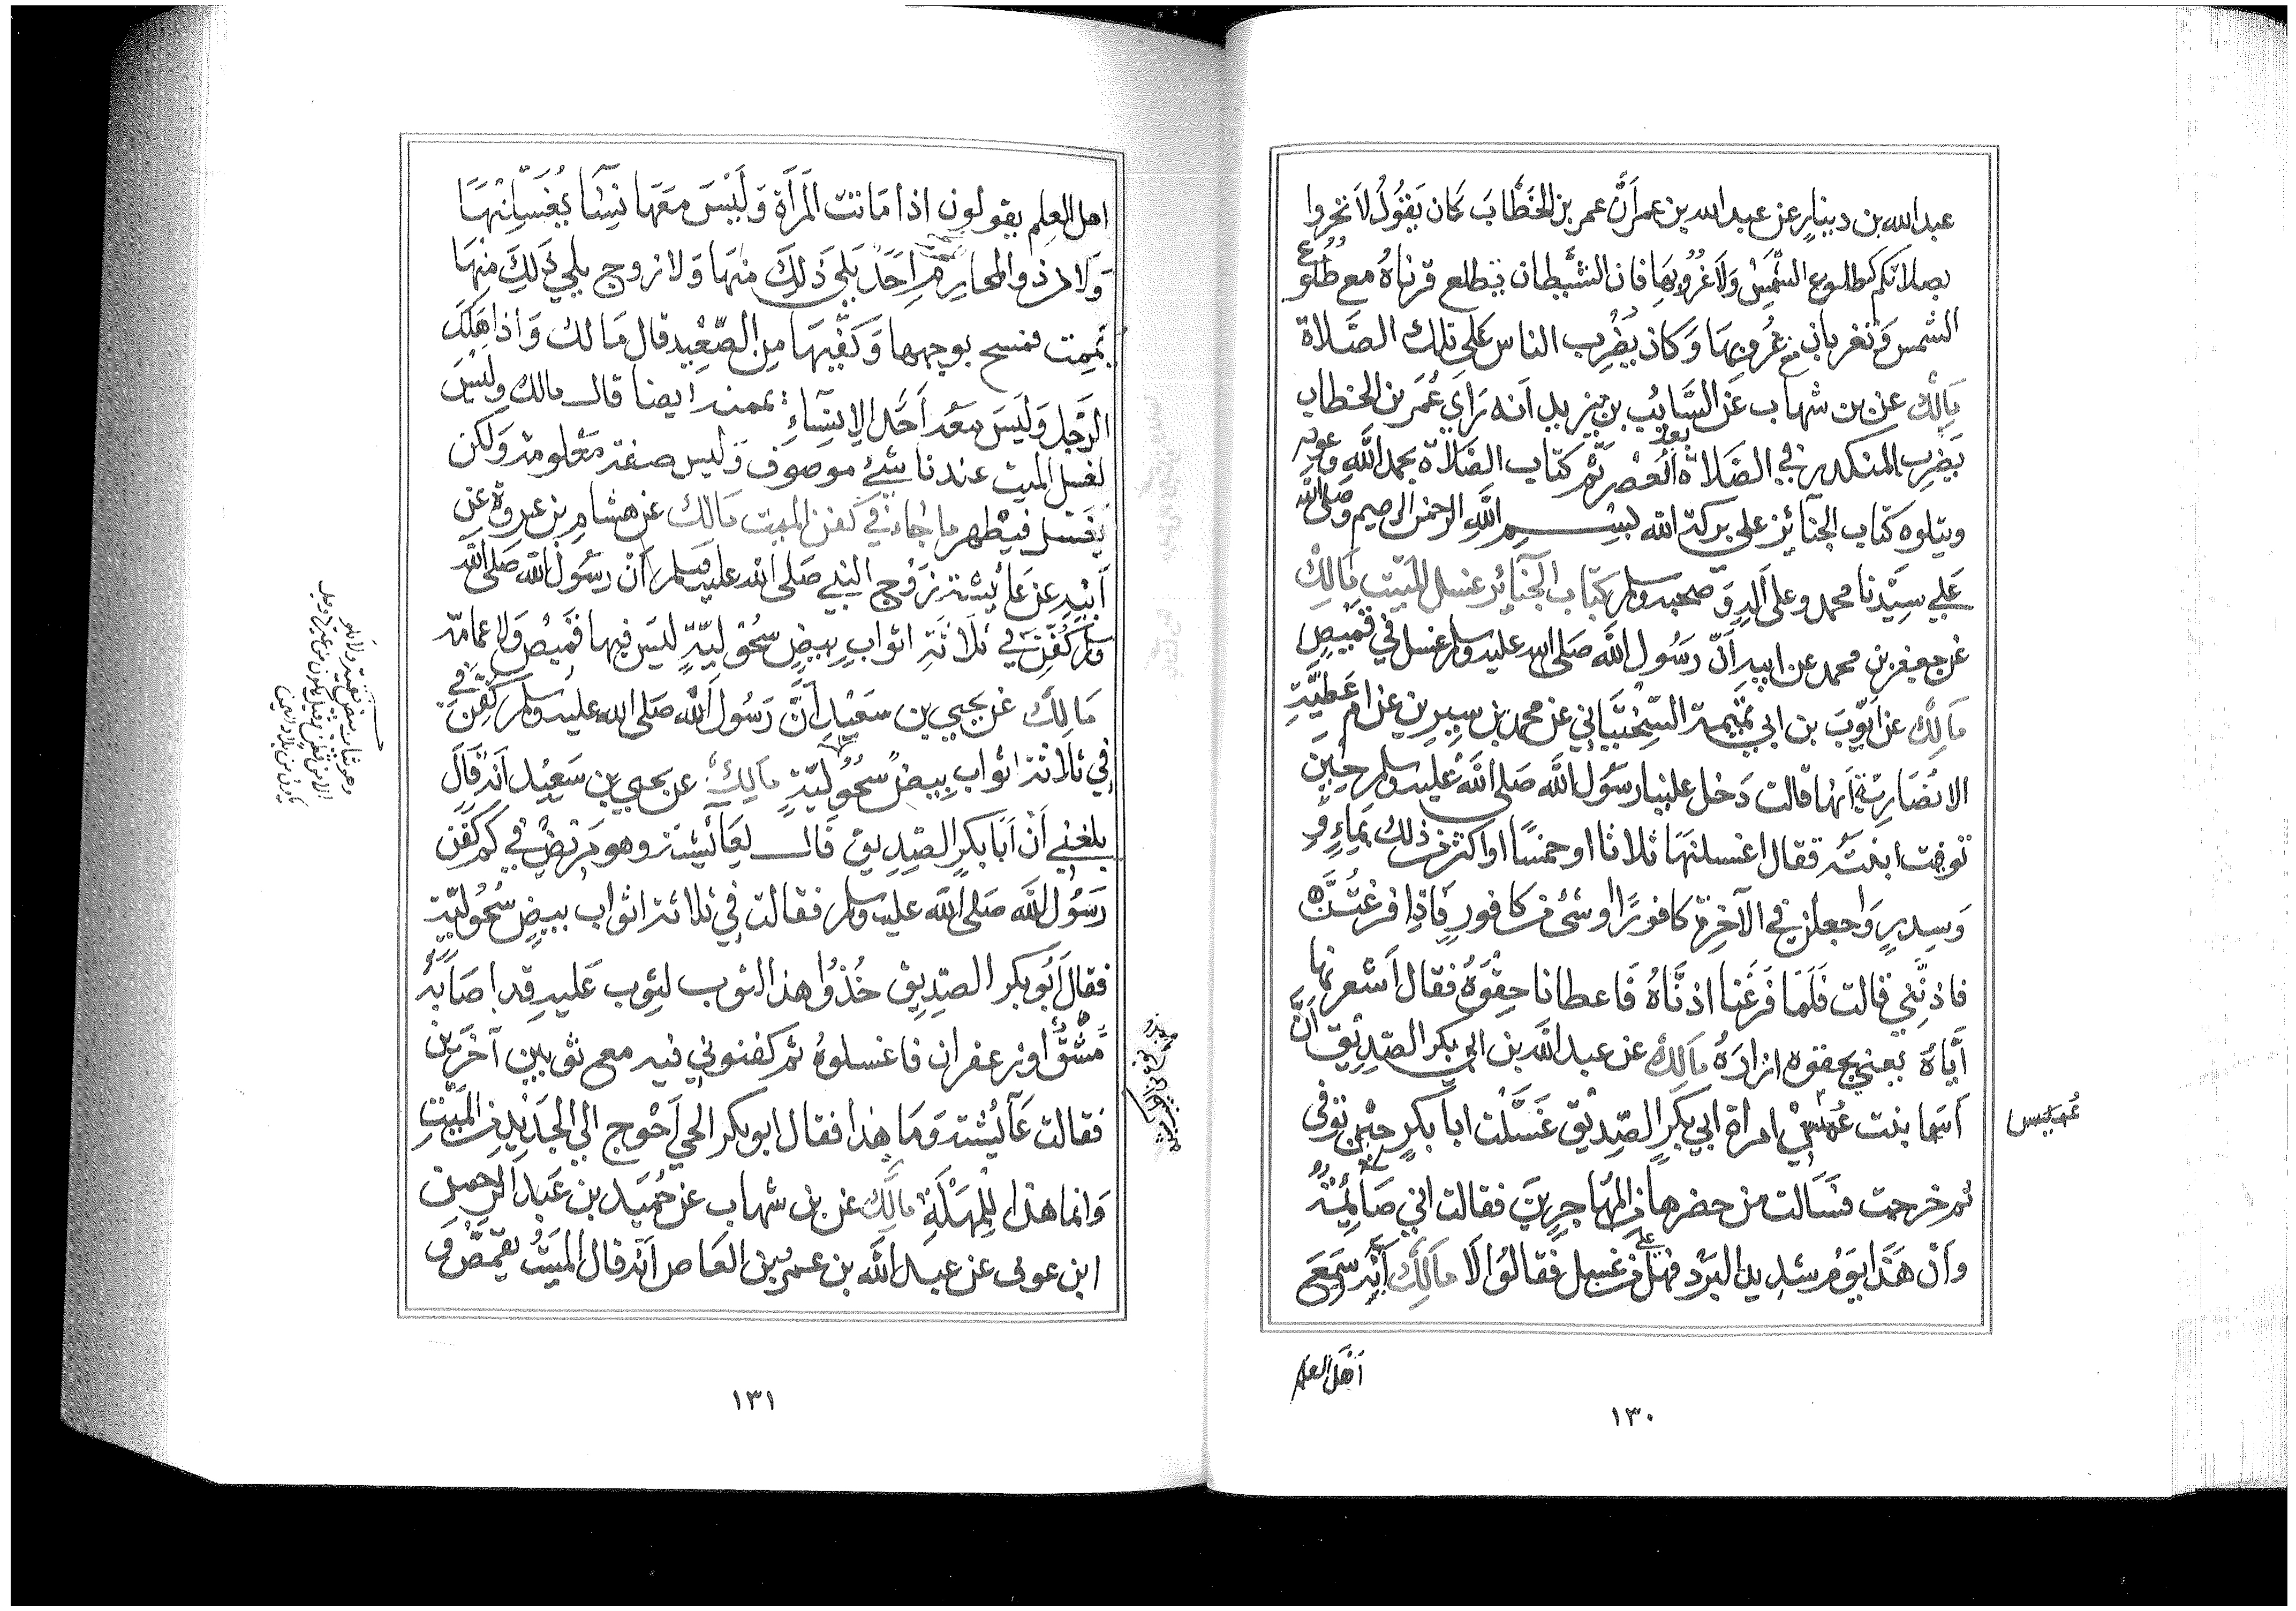 عبد الله بن دينار عن عبد الله بن عمر أنَّ عمر بن الخَطَّابَ كان يَقُولُ لا تحروا
بصلاتكم طلوع الشَّمس وَلاَ غُرُوبها فان الشيطان تطلع قرناهُ مع طُلُوع
الشمس وَتغربان مع غُروبها وَكان يَضْرِب الناس عَلى تلك الصَّلاة
مَالِك عن بن شهاب عَن السَّايُب بن يزيد أنه رَاي عُمَر بن الخطاب
يَضْرِب المنكدر في الصَّلاة بعد العَصْر تم كتاب الصَّلاة بحمد الله وعونه
ويتلوه كتاب الجنائز على بركة الله بسم الله الرحمن الرحيم وَصَلى الله
عَلى سَيِّدنا محمد وعلى آله وَصحبه وسلم كتاب الجنَائز غسل الميّت مَالِك
عن جعفر بن محمد عن ابيه أنّ رَسُول الله صَلى الله عليه وسلم غسل في قَمِيصٍ
مَالِك عن أيّوبَ بن ابي تَمِيمة السَّخْتِيَاني عن محمد بن سِيرين عن ام عَطِيّة
الانصَارِيّة أنها قالت دَخل علينا رسُول الله صَلى الله عليه وسلم حِين
توفيت ابنتُه فقال اغسلنهَا ثلاثا او خمسًا او اكثر من ذلك بماءٍ
وَسِدرٍ وَاجعلن في الآخرة كافورًا او شئ من كافور فَاذا فرغتُنَّ
فاذنَّني قالت فَلَما فَرَغنا اذنَّاهُ فَاعطانا حِقْوَهُ فقال اَشعرنها
أيّاهُ يعني بحقوه ازارَهُ مَالِك عن عبد الله بن ابي بكر الصّدِيق أنَّ
أسَما بنت عُمَيْس امراة ابي بَكرٍ الصّدِيق غَسَّلت ابا بكرٍ حين توفى
عُمَيس
ثم خرجت فسَالت من حضرها من المهَاجِرِينَ فقالت اني صَائِمَة
وَأن هَذا يَوْم شديد البَرْد فهل عليَّ من غسل فقالوُا لَا مَالِك أنه سَمِعَ
أهْل العلم
١٣٠
اهل العِلم يقولون اذا مَاتت المَرأة وَلَيْسَ معَهَا نِسَا يُغَسِّلنَهَا
وَلا من ذو المحارِم احَدٌ يَلي ذَلِكَ منهَا وَلا زوج يلي ذَلِكَ منهَا
يُمِّمت فمسح بوجهها وَكَفَّيهَا مِن الصَّعِيد قال مَالك وَاذا هَلَكَ
الرّجل وَلَيسَ مَعَه أحَد الا نِسَاءٍ يممنه ايضا قال مالك وليْسَ
لغسل الميت عندنا شئ موصوف وَليس صفة مَعْلومة وَلكن
يُغسل فيُطَهر ما جاء في كفن الميت مَالك عن هشام بن عروة عن
أبيه عن عَايُشة زوْج النبي صَلى الله عليه وسلم أنْ رسُول الله صَلى الله
وسلم كُفّن في ثَلاثة اثوابٍ بيضٍ سُحُولِيّةٍ ليَس فيها قمِيصٌ وَلا عمامة
مَالِك عن يحيي بن سَعيْد أنَّ رَسُول الله صَلى الله عليه وسلم كُفّن
في ثلاثة اثواب بِيضٍ سُحُوليّةٍ مالِكٌ عن يحيي بن سَعيْد أنه قَالَ
بلغني أنْ أبَا بَكر الصّدِيق قَال لِعَائشة وهو مَريضٌ في كم كفن
رَسُول الله صَلى الله عليه وسلم فقالت في ثلاثة اثواب بيضٍ سُحُوليّة
فقال أبُو بكر الصّدِيق خُذوُا هذا الثوب لثوب عَليهِ قد اصَابَهُ
مِشْقٌ او زعفران فاغسلوهُ ثم كفنوني فيه مع ثوبين آخرَين
فقالت عَايُشة وَمَا هٰذا فقال ابو بكر الحي اَحْوج الي الجَدِيد من الميّتِ
وَانما هذا لِلمُهْلَةِ مالِك عن بن شهاب عن حُمَيد بن عَبد الرحمن
ابن عوف عن عبد الله بن عمرو بن العَاص أنه قال الميّتُ يقمّصُ وَ
١٣١